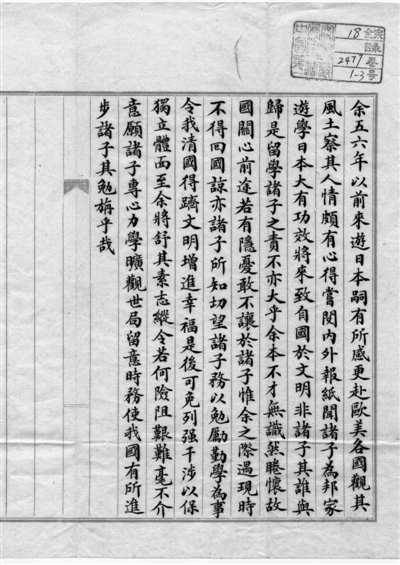 18
2477
1-3號
余五六年以前來遊日本嗣有所感更赴歐美各國觀其
風土察其人情頗有心得嘗閱內外報紙聞諸子為邦家
遊學日本大有功效將來致自國於文明非諸子其誰與
歸是留學諸子之責不亦大乎余本不才無識然睠懷故
國關心前途若有隱憂敢不讓於諸子惟余之際遇現時
不得回國諒亦諸子所知切望諸子務以勉勵勤學為事
令我清國得躋文明增進幸福是後可免列强干涉以保
獨立體面至余將舒其素志縱令若何險阻艱難毫不介
意願諸子專心力學曠觀世局留意時務使我國有所進
步諸子其勉旃乎哉